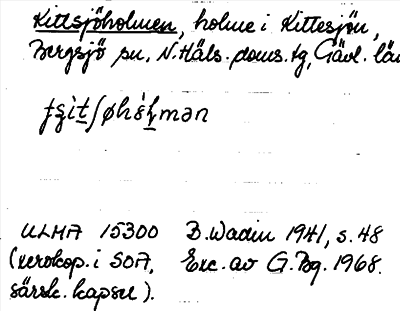 Kittsjöholmen, holme i Kittesjön,
Bergsjö sn, N.Häls. doms. tg, Gävl. län
ULMA 15300 B. Wadin 1941, s. 48
(xerokop. i SOA, Exc. av G. Bg. 1968.
särsk. kapsel).